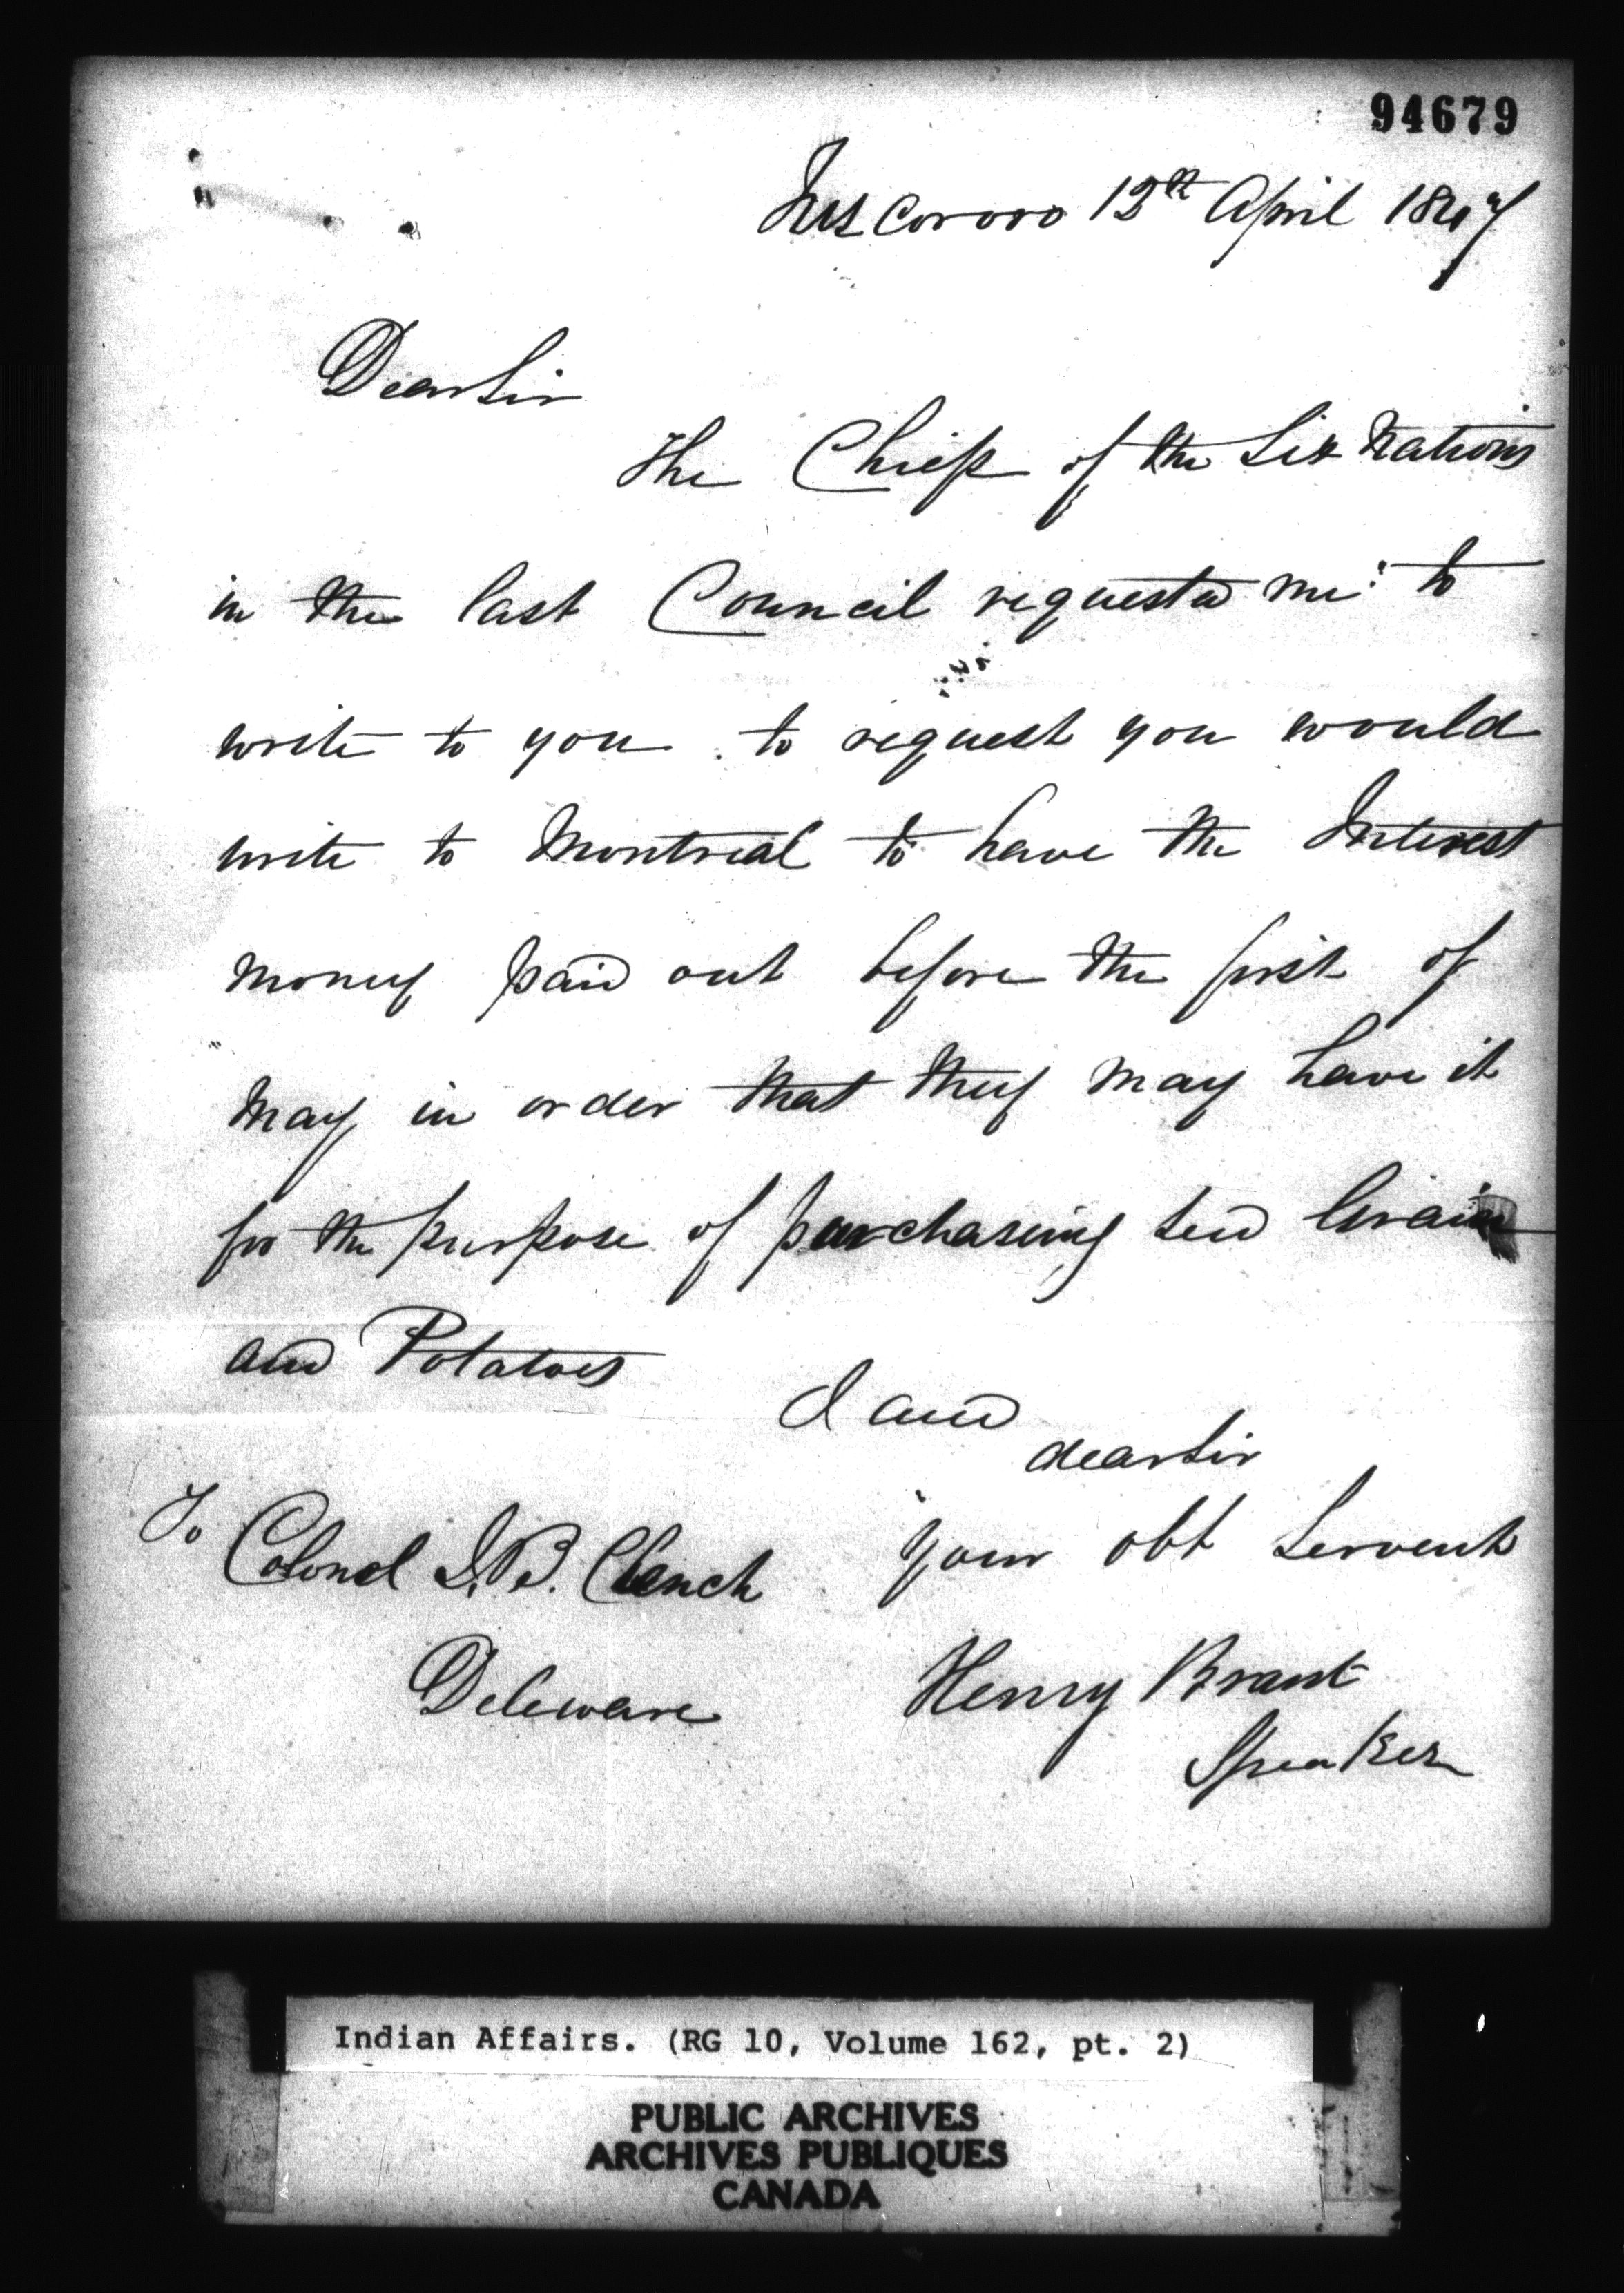 94679
Tuscororo 12th April 1847
Dear Sir
The Chiefs of the Six Nations
in the last Council requested me to
write to you to request you would
write to Montreal to have the Interest
money paid out before the first of
May in order that they may have it
for the purpose of purchasing seed Grain
and Potatoes
I am
dear Sir
To Colonel J. B. Clench
your obt Servent
Deleware
Henry Brant
Speaker
Indian Affairs. (RG 10, Volume 162, pt. 2)
PUBLIC ARCHIVES
ARCHIVES PUBLIQUES
CANADA